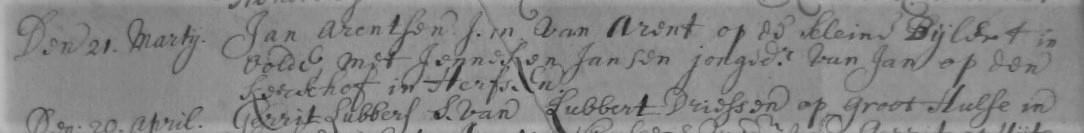 Den 21. Martij. Jan Arentsen J. m. van Arent op de kleine Bijlert in
volde met Jenneken Jansen jonged.r van Jan op den
kerckhof in Herfsen
Den 20. April. Gerrit Lubbers S. van Lubbert Driessen op groot Hulse in